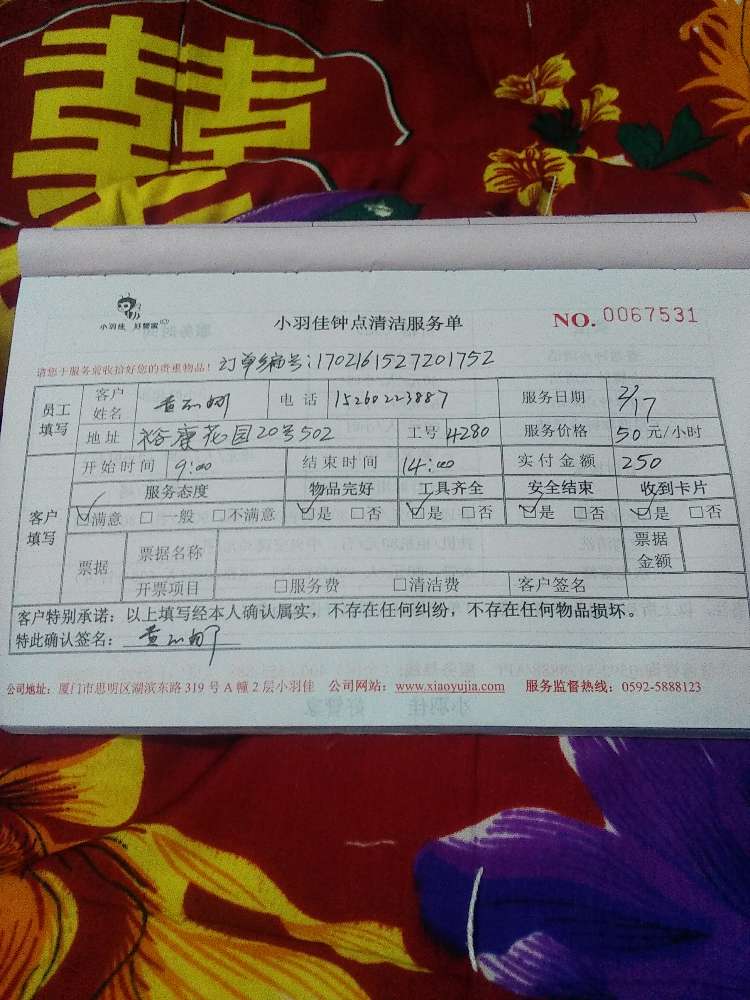 囍
小羽佳 好管家
小羽佳钟点清洁服务单
NO. 0067531
请您于服务前收拾好您的贵重物品！ 订单编号：1702161527201752
员工填写 客户姓名 电话 15260223887 服务日期 2/17
地址 裕康花园20号502 工号 4280 服务价格 50 元/小时
客户填写 开始时间 9:00 结束时间 14:00 实付金额 250
服务态度 物品完好 工具齐全 安全结束 收到卡片
☑满意 □一般 □不满意 ☑是 □否 ☑是 □否 ☑是 □否 ☑是 □否
票据 票据名称 票据金额
开票项目 □服务费 □清洁费 客户签名
客户特别承诺：以上填写经本人确认属实，不存在任何纠纷，不存在任何物品损坏。
特此确认签名：
公司地址：厦门市思明区湖滨东路 319 号 A 幢 2 层小羽佳 公司网站：www.xiaoyujia.com 服务监督热线：0592-5888123